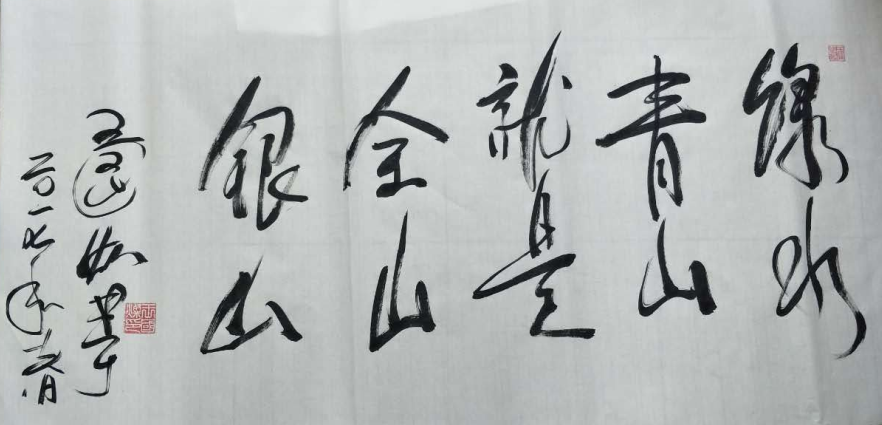 绿水
青山
就是
金山
银山
二〇一七年春